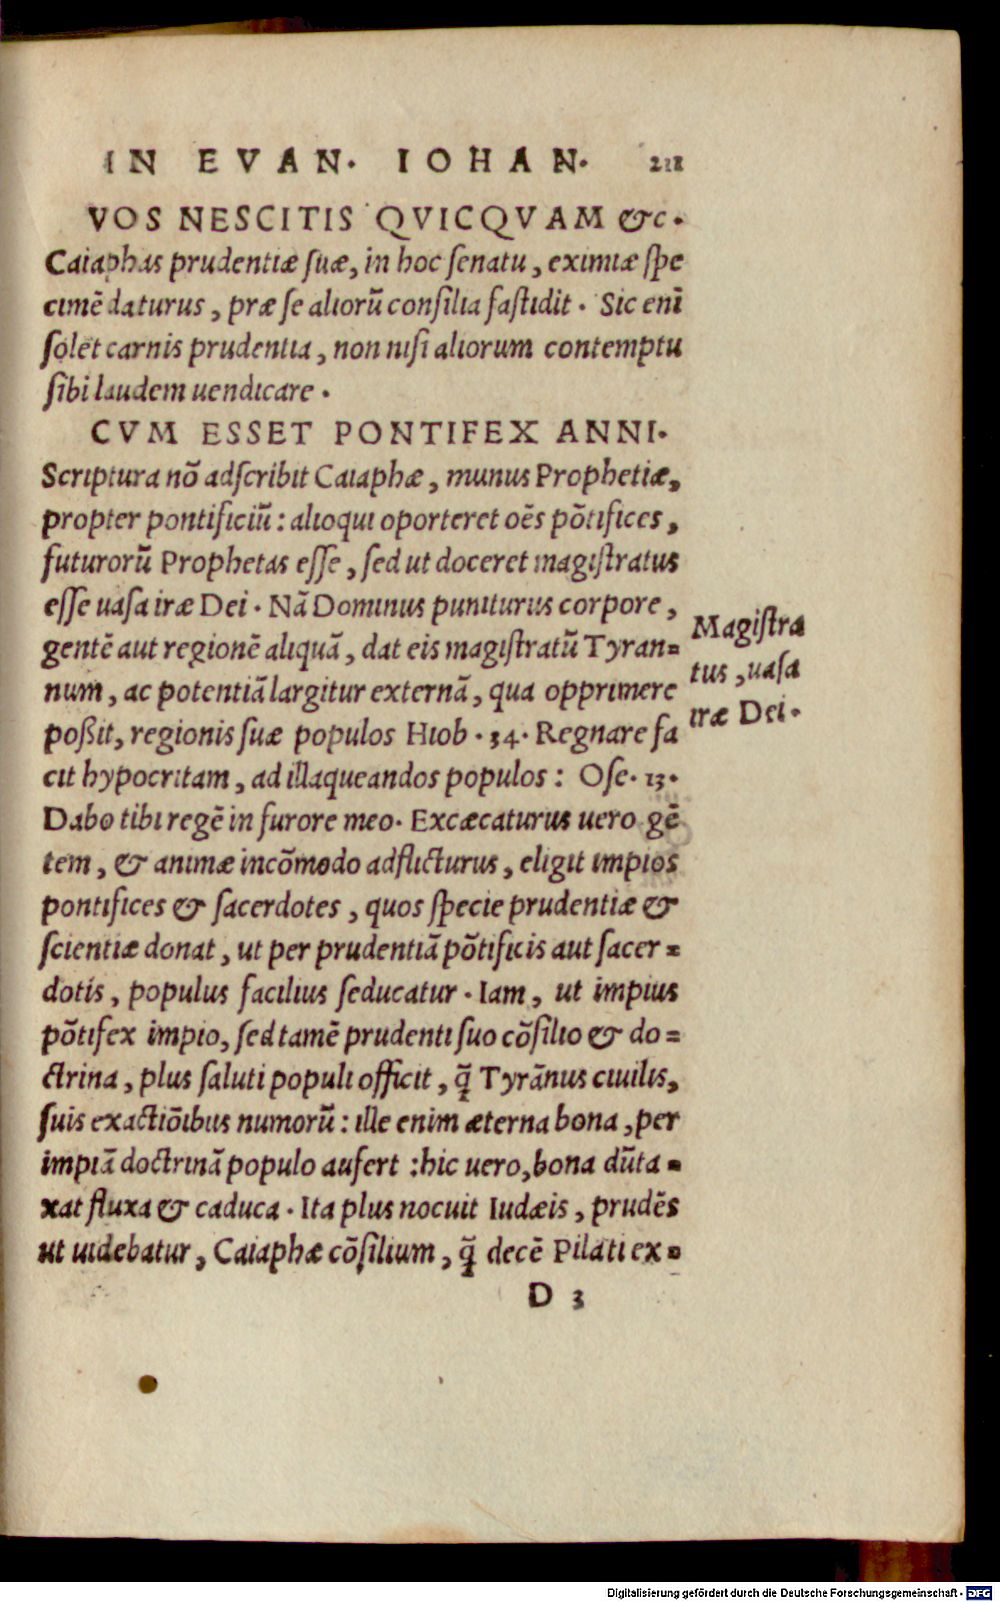 IN EVAN. IOHAN. 211
VOS NESCITIS QVICQVAM &c.
Caiaphas prudentiæ suæ, in hoc senatu, eximiæ spe
cimē daturus, præ se aliorū consilia fastidit. Sic enī
solet carnis prudentia, non nisi aliorum contemptu
sibi laudem uendicare.
CVM ESSET PONTIFEX ANNI.
Scriptura nō adscribit Caiaphæ, munus Prophetiæ,
propter pontificiū: alioqui oporteret oēs pōtifices,
futurorū Prophetas esse, sed ut doceret magistratus
esse uasa iræ Dei. Nā Dominus puniturus corpore,
gentē aut regionē aliquā, dat eis magistratū Tyran=
num, ac potentiā largitur externā, qua opprimere
poßit, regionis suæ populos Hiob. 34. Regnare fa
cit hypocritam, ad illaqueandos populos: Ose. 13.
Dabo tibi regē in furore meo. Excæcaturus uero gē
tem, & animæ incōmodo adflicturus, eligit impios
pontifices & sacerdotes, quos specie prudentiæ &
scientiæ donat, ut per prudentiā pōtificis aut sacer=
dotis, populus facilius seducatur. Iam, ut impius
pōtifex impio, sed tamē prudenti suo cōsilio & do=
ctrina, plus saluti populi officit, q̄ Tyrānus ciuilis,
suis exactiōibus numorū: ille enim æterna bona, per
impiā doctrinā populo aufert: hic uero, bona dūta=
xat fluxa & caduca. Ita plus nocuit Iudæis, prudēs
ut uidebatur, Caiaphæ cōsilium, q̄ decē Pilati ex=
D 3
Magistra
tus, uasa
iræ Dei.
Digitalisierung gefördert durch die Deutsche Forschungsgemeinschaft - DFG